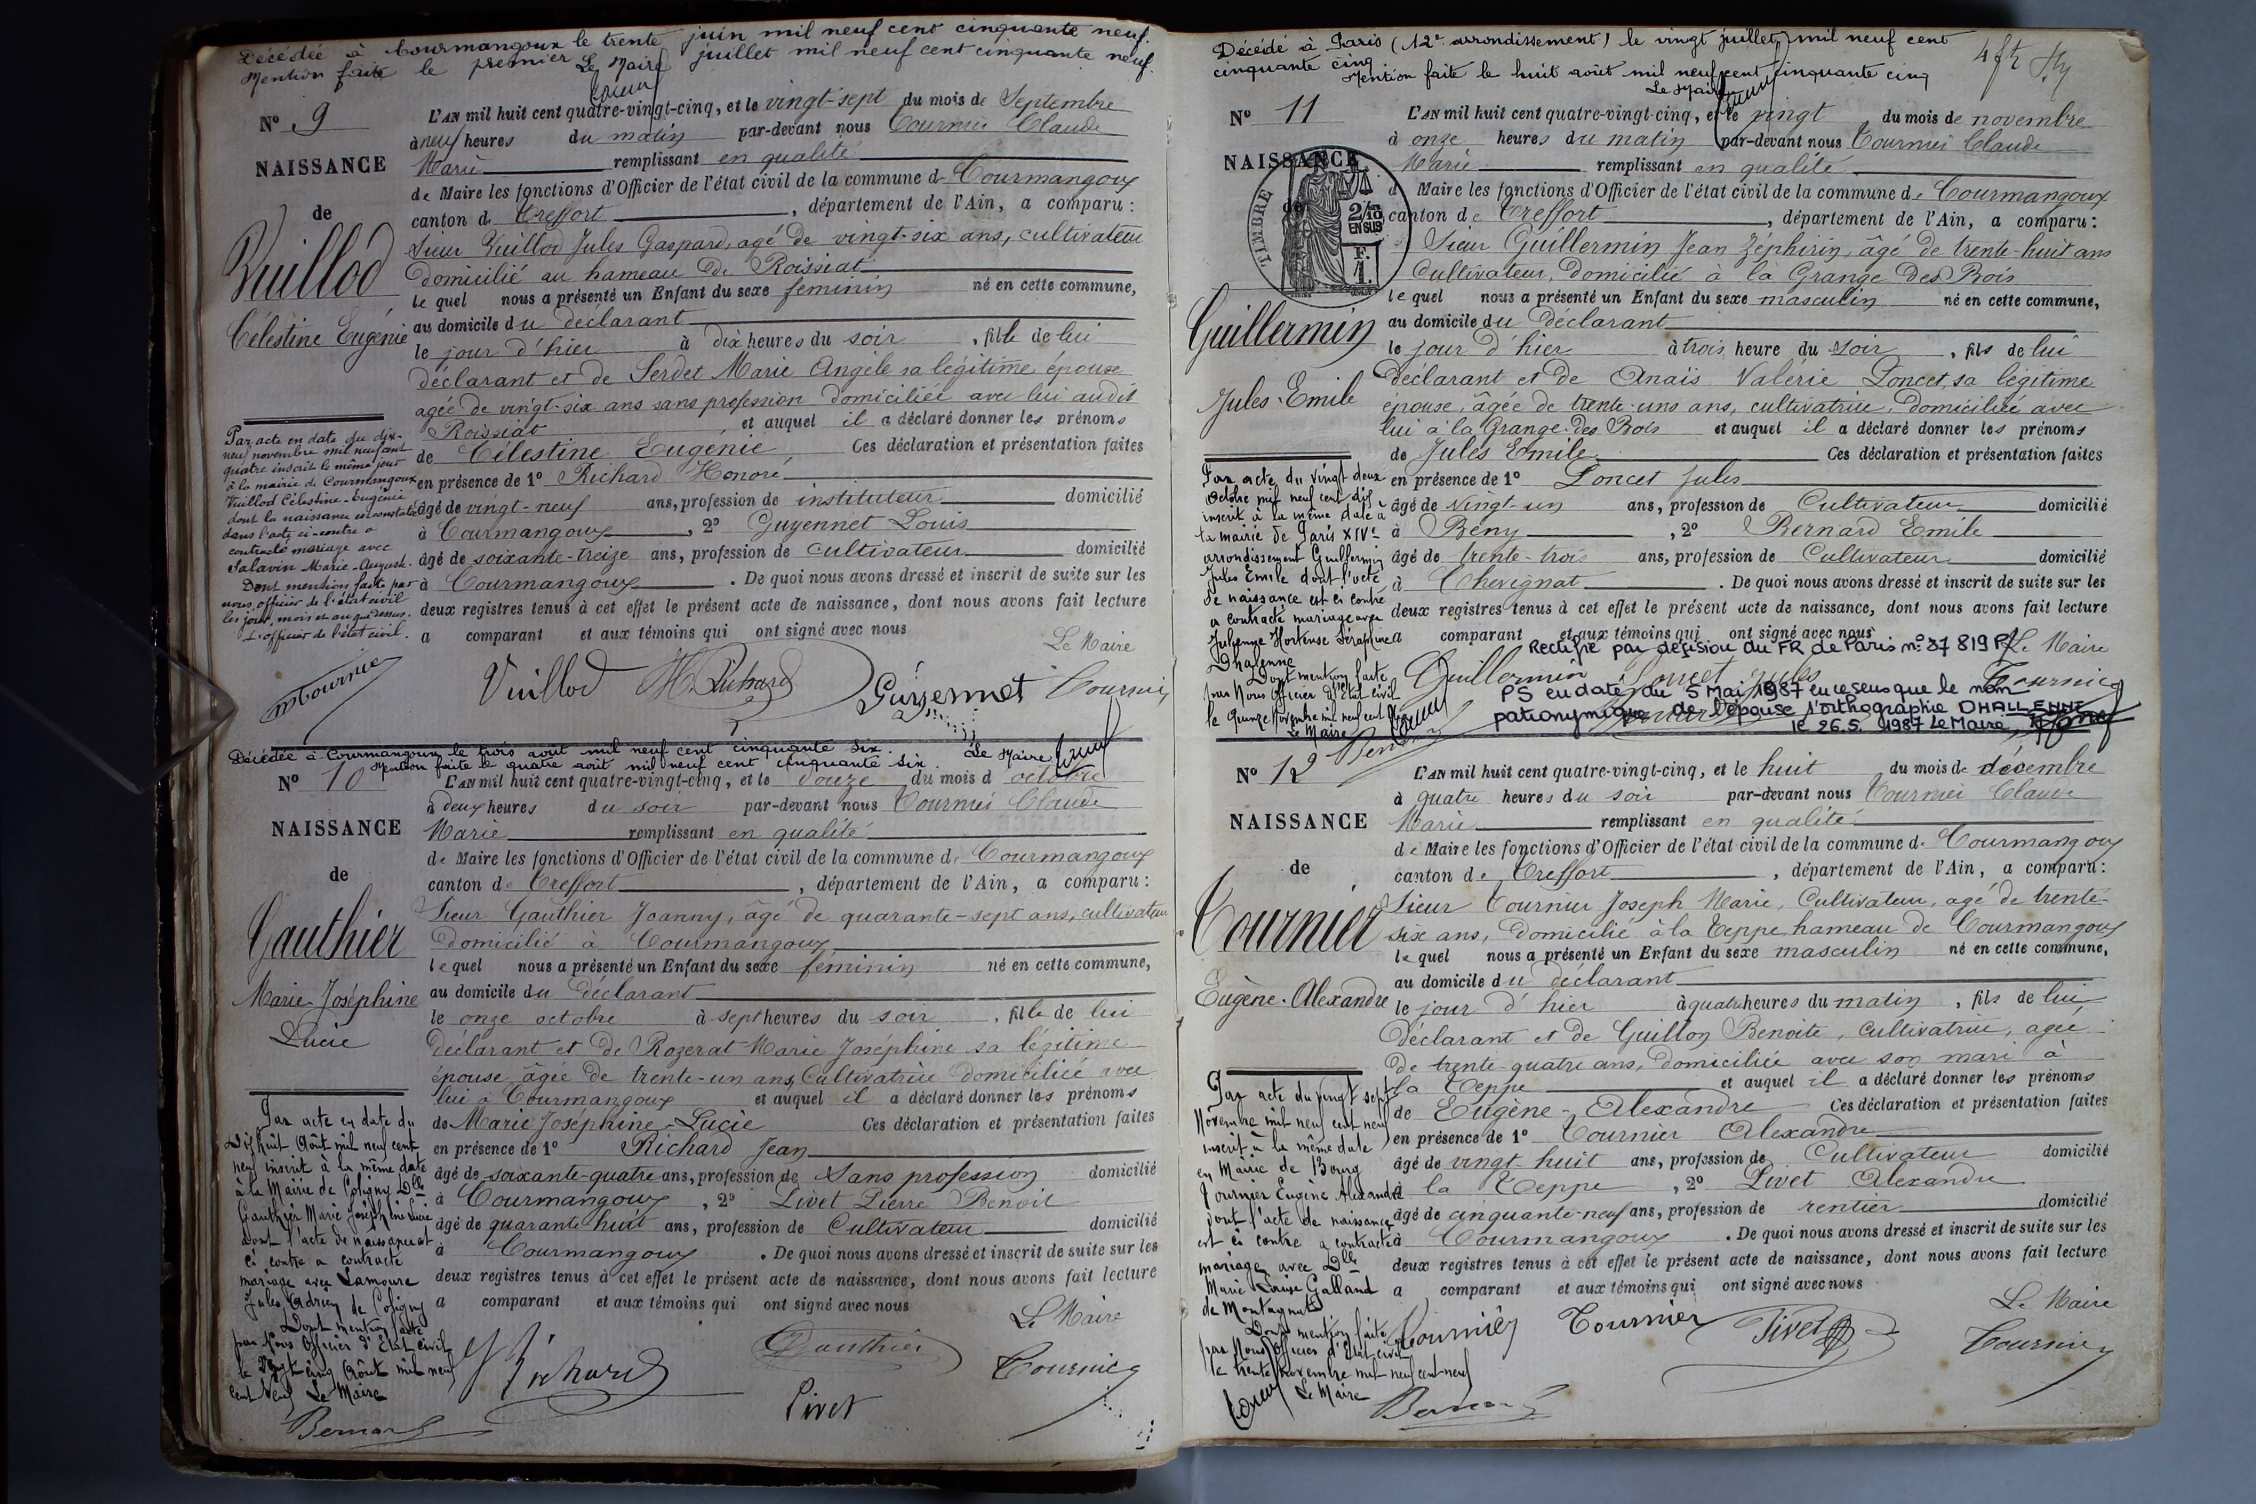 Décédée à Courmangoux le trente juin mil neuf cent cinquante neuf.
Mention faite le premier juillet mil neuf cent cinquante neuf.
Le Maire
N° 9
NAISSANCE
de
Vuillod
Célestine Eugénie
L'AN mil huit cent quatre-vingt-cinq, et le vingt-sept du mois de Septembre
à neuf heures du matin par-devant nous Tournier Claude
Marie remplissant en qualité
de Maire les fonctions d'Officier de l'état civil de la commune de Courmangoux
canton de Treffort, département de l'Ain, a comparu :
Sieur Vuillod Jules Gaspard, agé de vingt-six ans, cultivateur
domicilié au hameau de Roissiat
le quel nous a présenté un Enfant du sexe féminin né en cette commune,
au domicile du déclarant
le jour d'hier à dix heures du soir, fille de lui
déclarant et de Serdet Marie Angèle sa légitime épouse
agée de vingt-six ans sans profession domiciliée avec lui audit
Roissiat et auquel il a déclaré donner les prénoms
de Célestine Eugénie, Ces déclaration et présentation faites
en présence de 1° Richard Honoré
âgé de vingt-neuf ans, profession de instituteur domicilié
à Courmangoux, 2° Guyennet Louis
âgé de soixante-treize ans, profession de cultivateur domicilié
à Courmangoux. De quoi nous avons dressé et inscrit de suite sur les
deux registres tenus à cet effet le présent acte de naissance, dont nous avons fait lecture
a comparant et aux témoins qui ont signé avec nous
Le Maire
Vuillod H. Richard Guyennet Tournier
Par acte en date du dix-
neuf novembre mil neuf cent
quatre inscrit le même jour
à la mairie de Courmangoux
Vuillod Célestine-Eugénie
dont la naissance est constatée
dans l'acte ci-contre a
contracté mariage avec
Salavin Marie-August.
Dont mention faite par
nous, officier de l'état civil
les jour, mois et an que dessus.
L'officier de l'état civil.
Tournier
Décédée à Courmangoux le trois août mil neuf cent cinquante six.
Mention faite le quatre août mil neuf cent cinquante six. Le Maire
N° 10
NAISSANCE
de
Gauthier
Marie-Joséphine
Lucie
L'AN mil huit cent quatre-vingt-cinq, et le douze du mois d octobre
à deux heures du soir par-devant nous Tournier Claude
Marie remplissant en qualité
de Maire les fonctions d'Officier de l'état civil de la commune de Courmangoux
canton de Treffort, département de l'Ain, a comparu :
Sieur Gauthier Joanny, âgé de quarante-sept ans, cultivateur
domicilié à Courmangoux
le quel nous a présenté un Enfant du sexe féminin né en cette commune,
au domicile du déclarant
le onze octobre à sept heures du soir, fille de lui
déclarant et de Rozerat Marie Joséphine sa légitime
épouse âgée de trente-un ans, Cultivatrice domiciliée avec
lui à Courmangoux et auquel il a déclaré donner les prénoms
de Marie Joséphine-Lucie Ces déclaration et présentation faites
en présence de 1° Richard Jean
âgé de soixante-quatre ans, profession de Sans profession domicilié
à Courmangoux, 2° Livet Pierre Benoit
âgé de quarante huit ans, profession de Cultivateur domicilié
à Courmangoux. De quoi nous avons dressé et inscrit de suite sur les
deux registres tenus à cet effet le présent acte de naissance, dont nous avons fait lecture
a comparant et aux témoins qui ont signé avec nous
Le Maire
Richard Gauthier Livet Tournier
Par acte en date du
Dix huit Août mil neuf cent
neuf inscrit à la même date
à la Mairie de Coligny Dlle
Gauthier Marie Joséphine Lucie
dont l'acte de naissance est
ci contre a contracté
mariage avec Lamoure
Jules Adrien de Coligny
Dont mention faite
par Nous Officier d'Etat civil
le Vingt cinq Août mil neuf
cent Neuf Le Maire
Bernard
Décédé à Paris (12e arrondissement) le vingt juillet mil neuf cent
cinquante cinq
Mention faite le huit août mil neuf cent cinquante cinq
Le Maire
N° 11
NAISSANCE
de
TIMBRE
2/10
EN SUS
F.
1.
Guillermin
Jules-Emile
L'AN mil huit cent quatre-vingt-cinq, et le vingt du mois de novembre
à onze heures du matin par-devant nous Tournier Claude
Marie remplissant en qualité
d Maire les fonctions d'Officier de l'état civil de la commune de Courmangoux
canton de Treffort, département de l'Ain, a comparu :
Sieur Guillermin Jean Zéphirin, âgé de trente-huit ans
Cultivateur, domicilié à la Grange des Bois
le quel nous a présenté un Enfant du sexe masculin né en cette commune,
au domicile du déclarant
le jour d'hier à trois heure du soir, fils de lui
déclarant et de Anaïs Valérie Poncet, sa légitime
épouse, âgée de trente-uns ans, cultivatrice, domiciliée avec
lui à la Grange-des Bois et auquel il a déclaré donner les prénoms
de Jules Emile Ces déclaration et présentation faites
en présence de 1° Poncet Jules
âgé de vingt-un ans, profession de Cultivateur domicilié
à Bény, 2° Bernard Emile
âgé de trente-trois ans, profession de Cultivateur domicilié
à Chevignat. De quoi nous avons dressé et inscrit de suite sur les
deux registres tenus à cet effet le présent acte de naissance, dont nous avons fait lecture
a comparant et aux témoins qui ont signé avec nous
Le Maire
Guillermin Poncet Jules Tournier
Bernard
Rectifié par décision du PR de Paris n° 87 819 P
PS en date du 5 Mai 1987 en ce sens que le nom
patronymique de l'épouse s'orthographie DHALLENNE
le 26.5.1987 Le Maire,
Par acte du vingt deux
Octobre mil neuf cent dix
inscrit à la même date à
la mairie de Paris XIVe
arrondissement Guillermin
Jules Emile dont l'acte
de naissance est ci contre
a contracté mariage avec
Julienne Hortense Séraphine
Dhalenne
Dont mention faite
par Nous Officier d'Etat civil
le quinze Novembre mil neuf cent dix
Le Maire
N° 12
NAISSANCE
de
Tournier
Eugène-Alexandre
L'AN mil huit cent quatre-vingt-cinq, et le huit du mois de décembre
à quatre heures du soir par-devant nous Tournier Claude
Marie remplissant en qualité
de Maire les fonctions d'Officier de l'état civil de la commune de Courmangoux
canton de Treffort, département de l'Ain, a comparu :
Sieur Tournier Joseph Marie, Cultivateur, agé de trente-
six ans, domicilié à la Teppe hameau de Courmangoux
le quel nous a présenté un Enfant du sexe masculin né en cette commune,
au domicile du déclarant
le jour d'hier à quatre heures du matin, fils de lui
déclarant et de Guillon Benoite, Cultivatrice, agée
de trente-quatre ans, domiciliée avec son mari à
la Teppe et auquel il a déclaré donner les prénoms
de Eugène-Alexandre Ces déclaration et présentation faites
en présence de 1° Tournier Alexandre
âgé de vingt-huit ans, profession de Cultivateur domicilié
à la Teppe, 2° Livet Alexandre
âgé de cinquante-neuf ans, profession de rentier domicilié
à Courmangoux. De quoi nous avons dressé et inscrit de suite sur les
deux registres tenus à cet effet le présent acte de naissance, dont nous avons fait lecture
a comparant et aux témoins qui ont signé avec nous
Le Maire
Tournier Tournier Livet Tournier
Par acte du vingt sept
Novembre mil neuf cent neuf
inscrit à la même date
en Mairie de Bourg
Tournier Eugène Alexandre
dont l'acte de naissance
est ci contre a contracté
mariage avec Dlle
Marie Louise Galland
de Montagnat
Dont mention faite
par Nous Officier d'Etat civil
le trente Novembre mil neuf cent neuf
Le Maire
Bernard